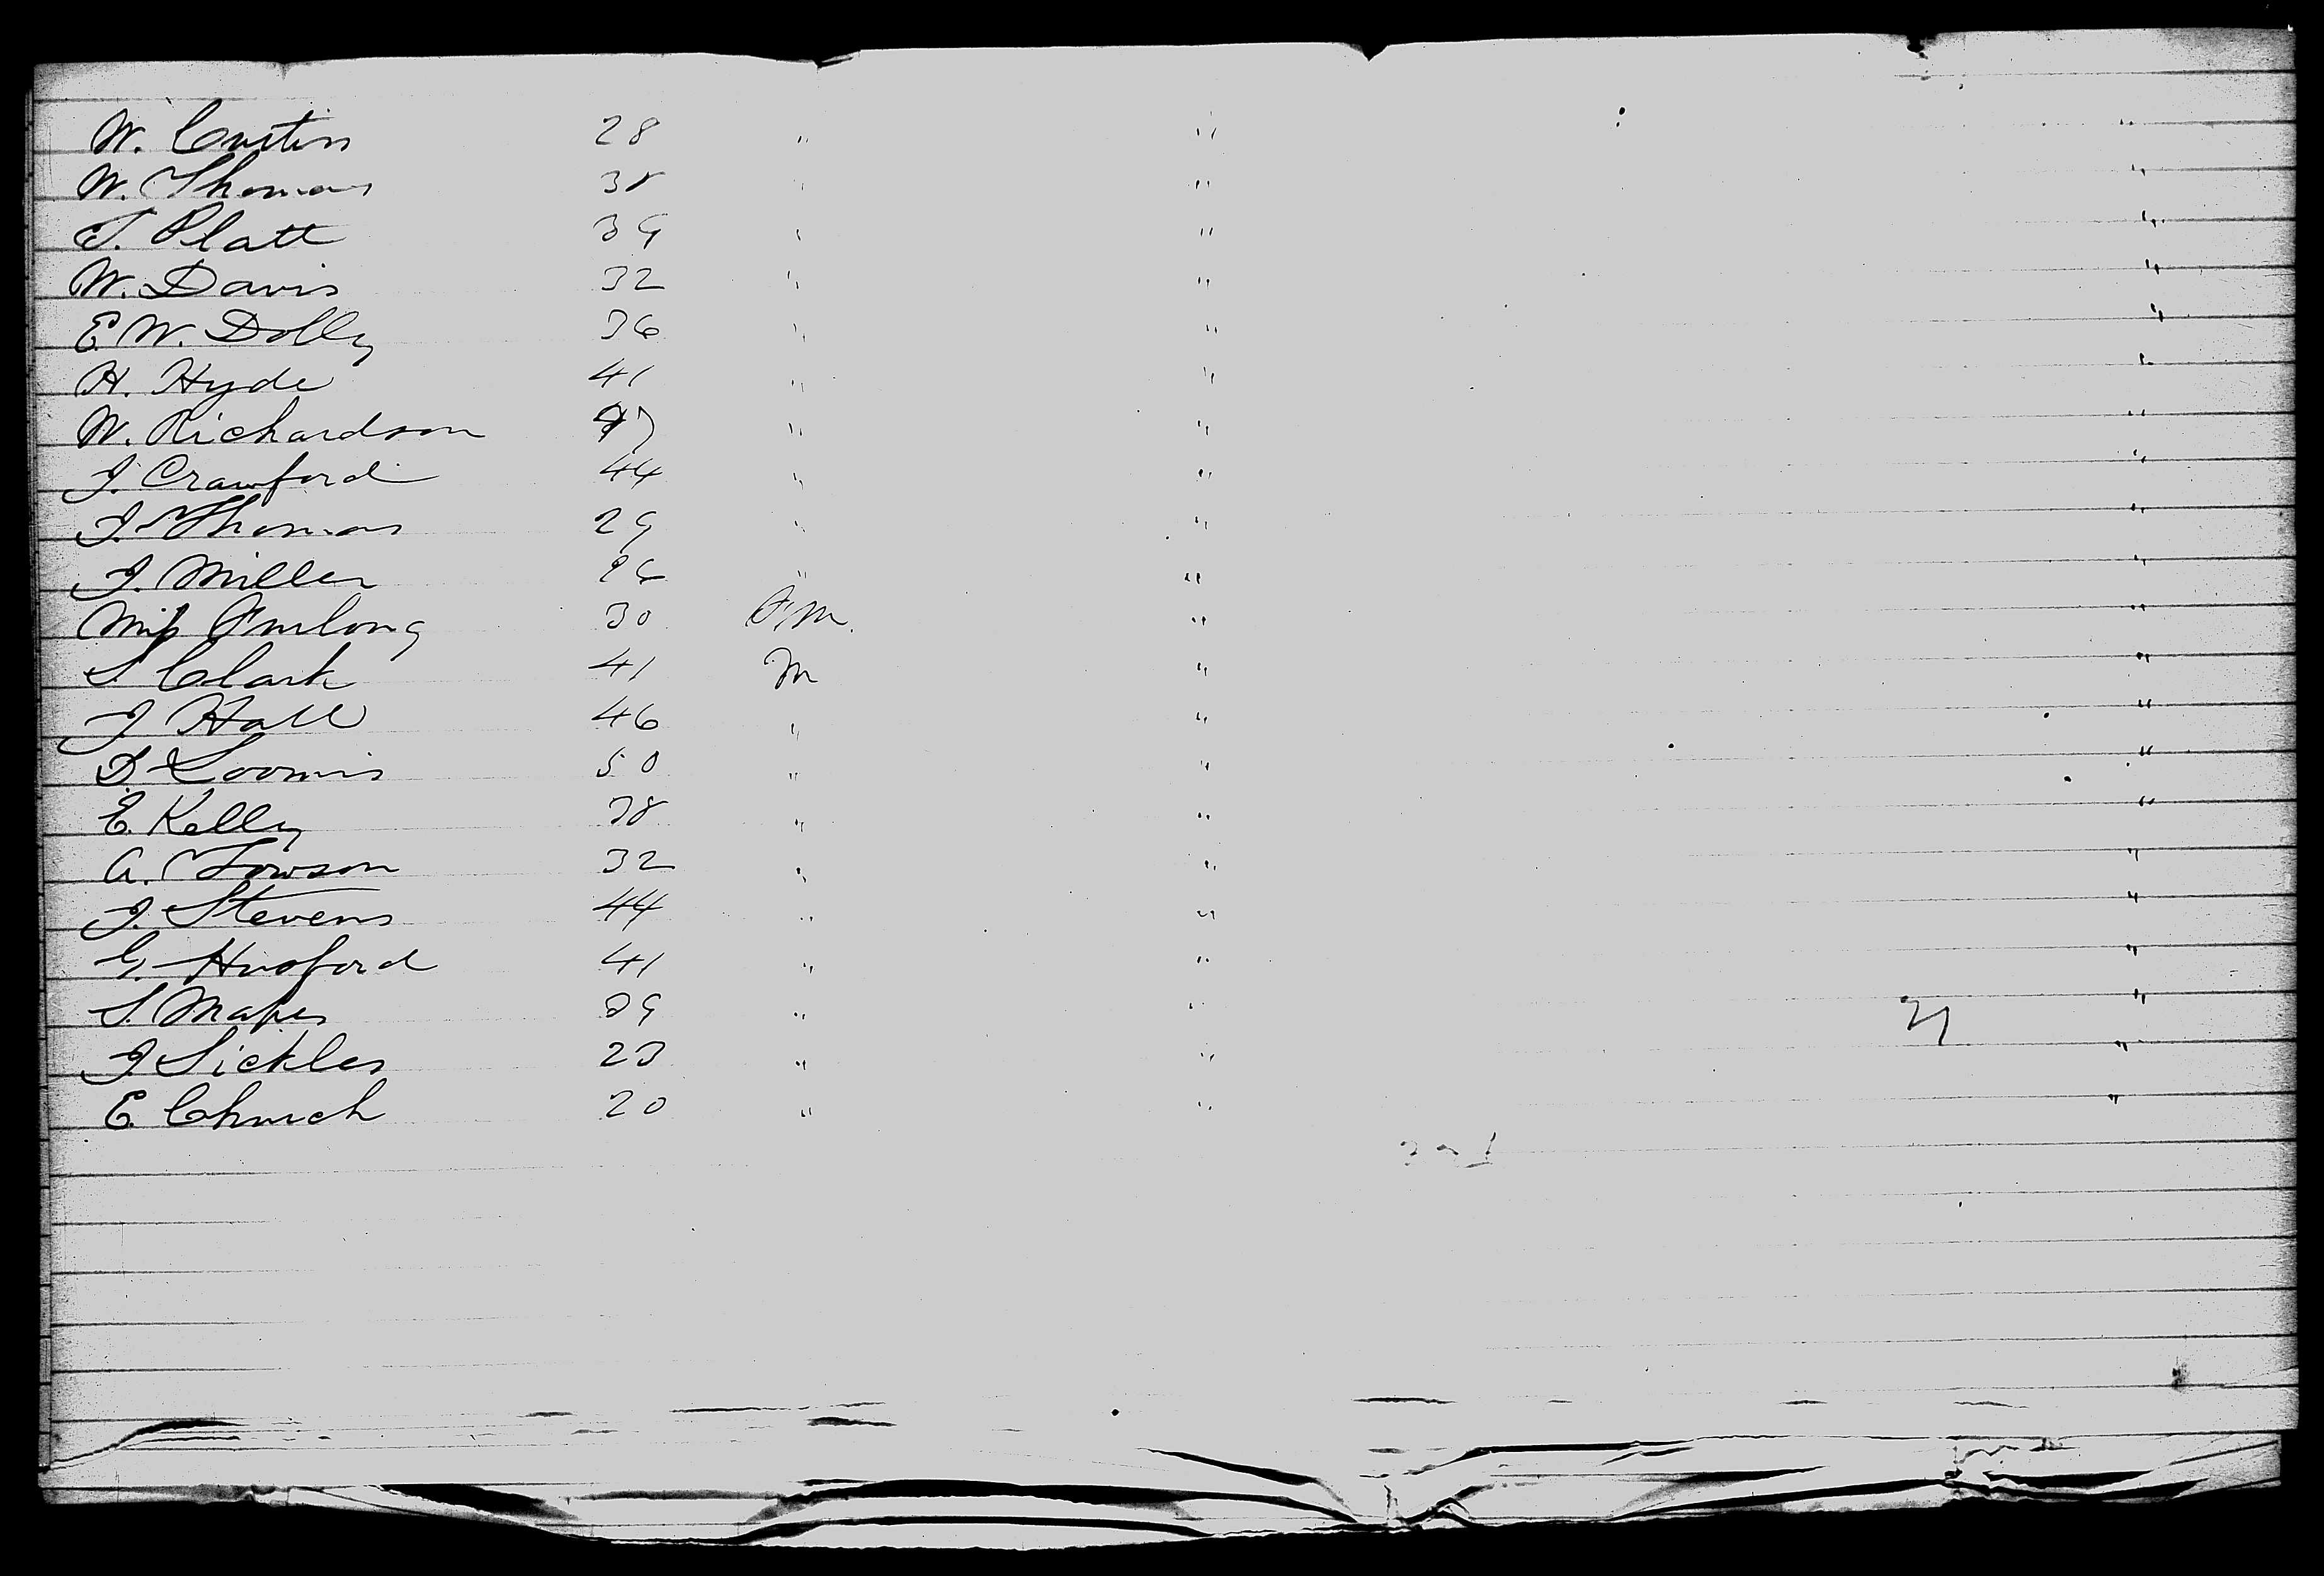 W. Curtiss 28 " " "
W. Thomas 38 " " "
T. Platt 39 " " "
W. Davis 32 " " "
E. W. Dolly 36 " " "
H. Hyde 41 " " "
W. Richardson 47 " " "
J. Crawford 44 " " "
J. Thomas 29 " " "
J. Miller 26 " " "
Miss Furlong 30 " "
S. Clark 41 M " "
J Hall 46 " " "
D. Loomis 50 " " "
E. Kelly 38 " " "
A. Towson 32 " " "
J. Stevens 44 " " "
G. Hosford 41 " " "
S. Mapes 39 " " "
J Sickles 23 " " "
E. Church 20 " " "